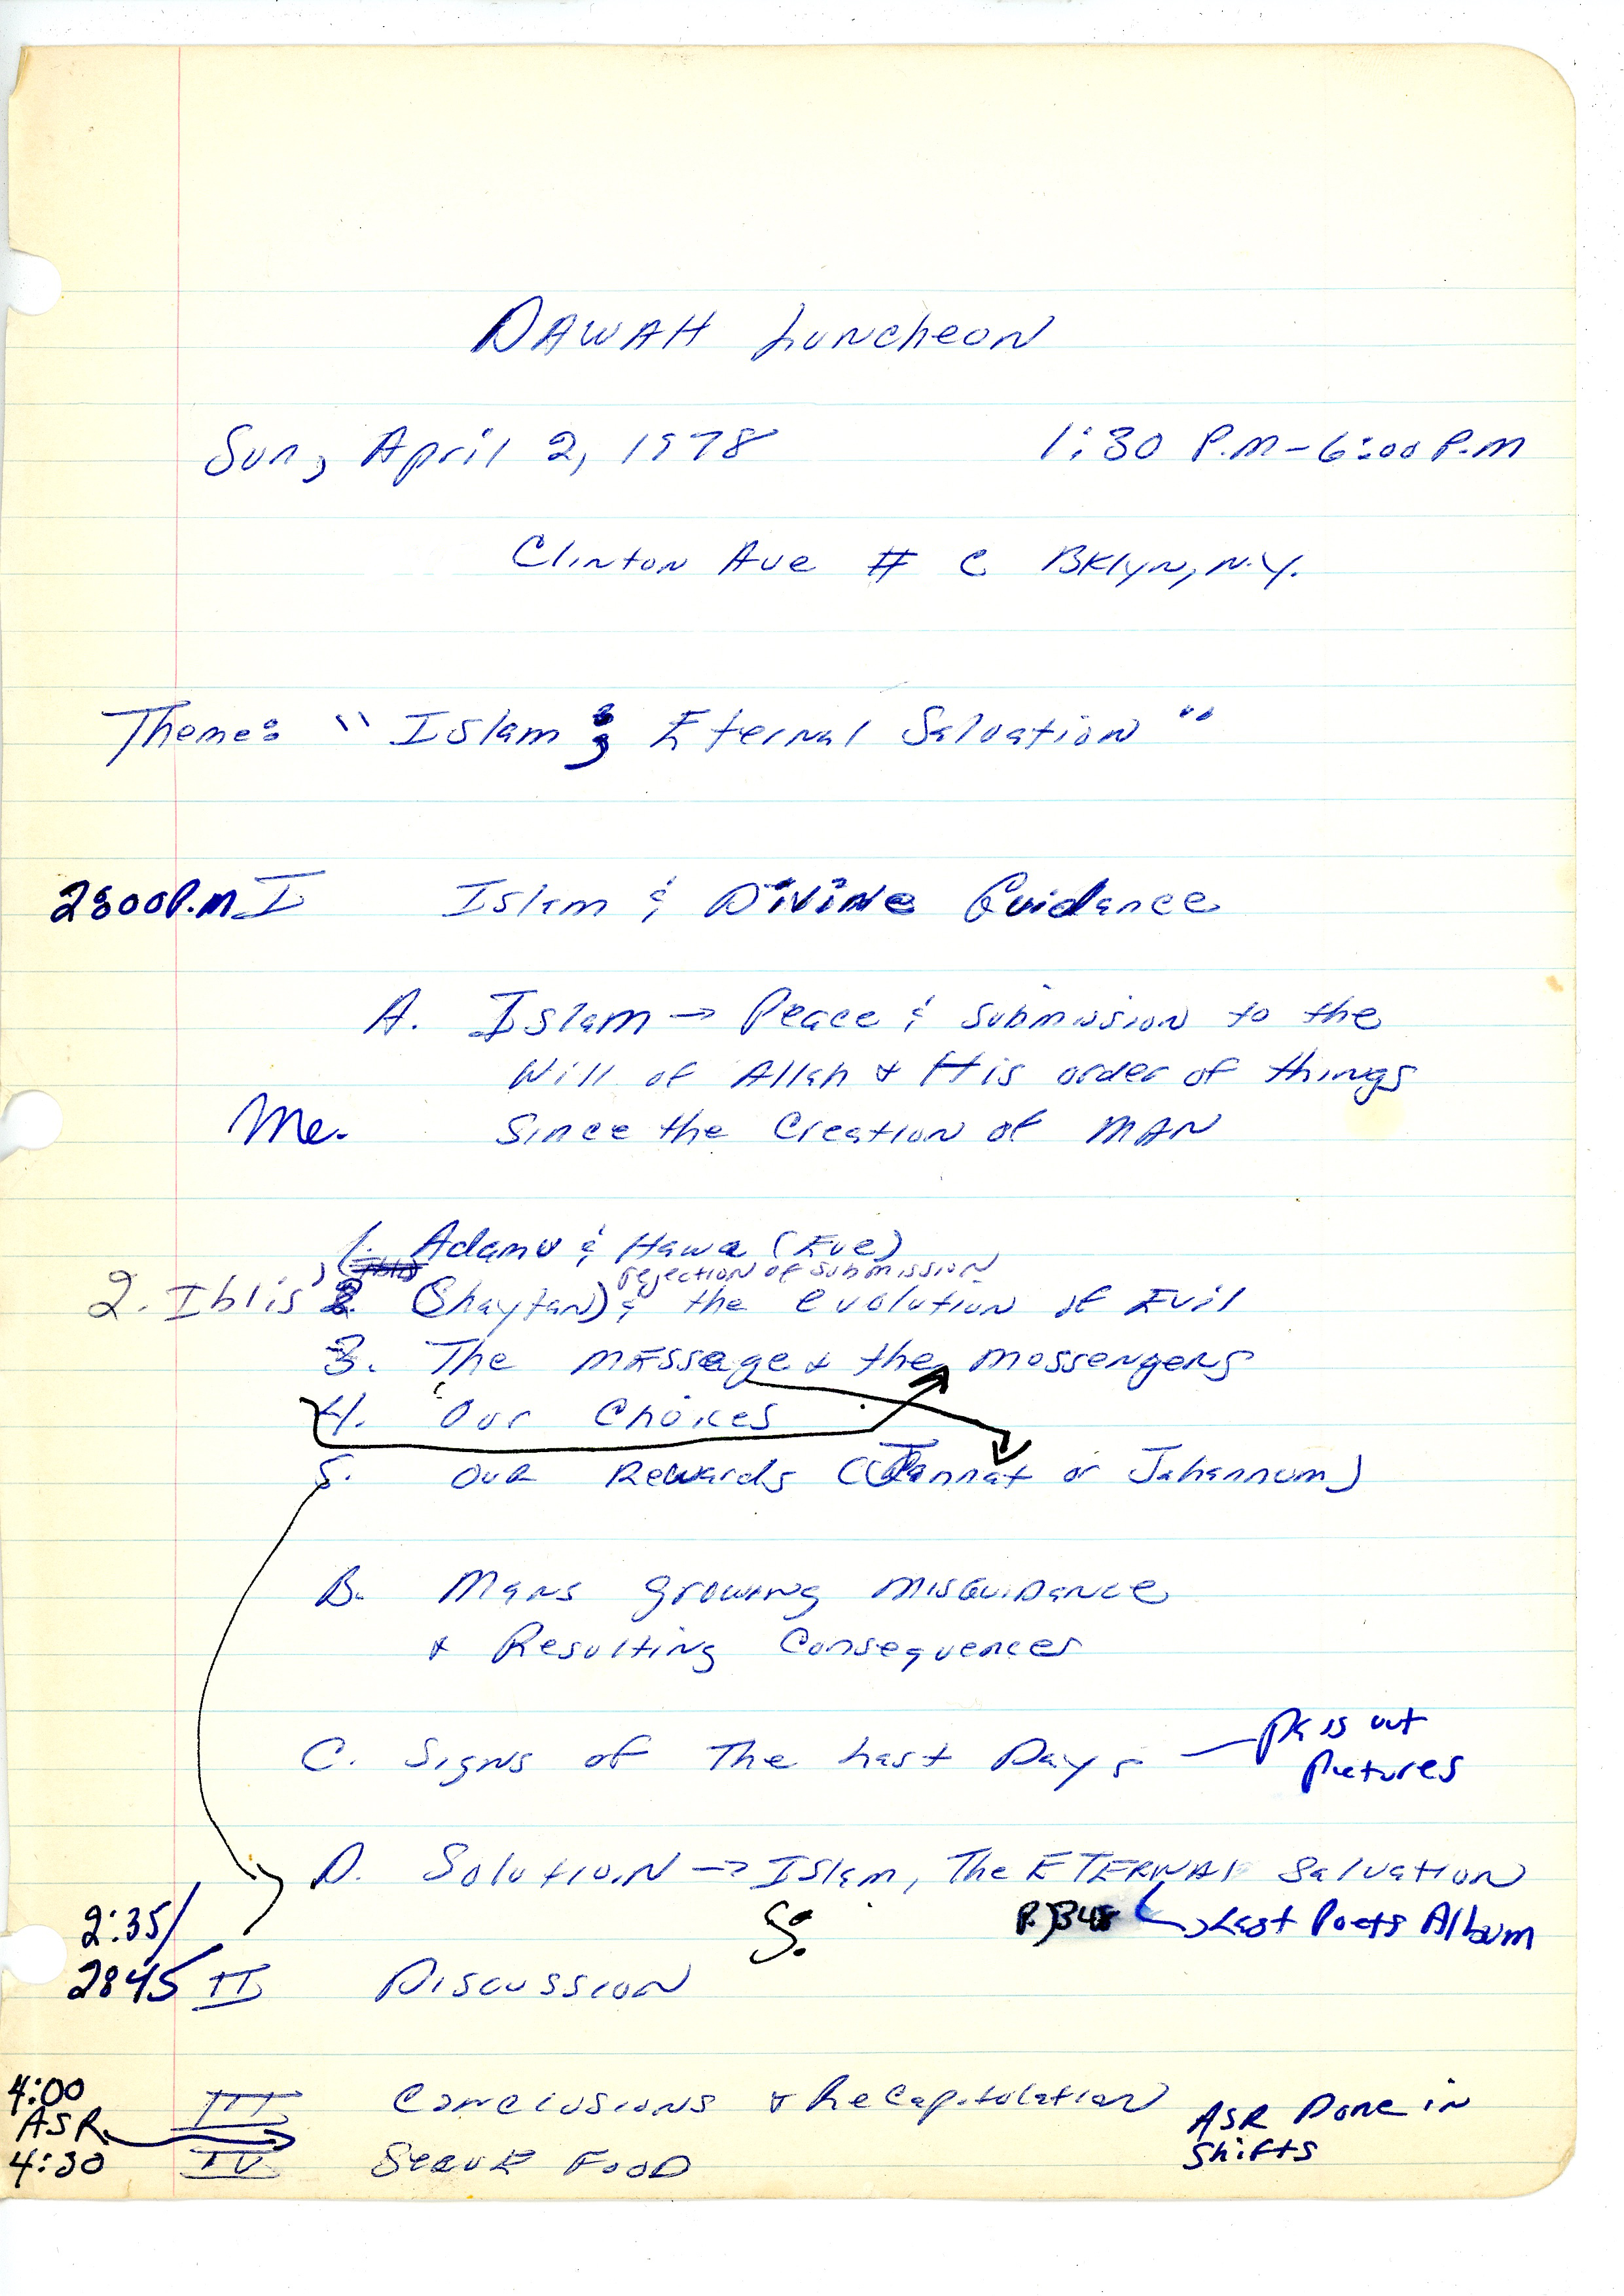 DAWAH Luncheon
Sun, April 2, 1978 1:30 P.M - 6:00 P.M
Clinton Ave # C BKlyn, N.Y.
Theme: "Islam: Eternal Salvation"
2:00 P.M I Islam & Divine Guidance
A. Islam → Peace & submission to the
Will of Allah & His order of things
Me. Since the Creation of MAN
1. Adam & Hawa (Eve)
rejection of submission
2. Iblis (Shaytan) & the evolution of Evil
3. The MESSage & the Messengers
4. Our Choices
5. Our Rewards (Jannat or Jahannum)
B. Mans growing misGuidance
& Resulting Consequences
C. Signs of The Last Days — Pass out
Pictures
D. Solution → Islam, The ETERNAL Salvation
2:35/ S: Last Poets Album
2:45 II Discussion
4:00 III Conclusions & Recapitulation ASR Done in
ASR Shifts
4:30 IV Serve Food